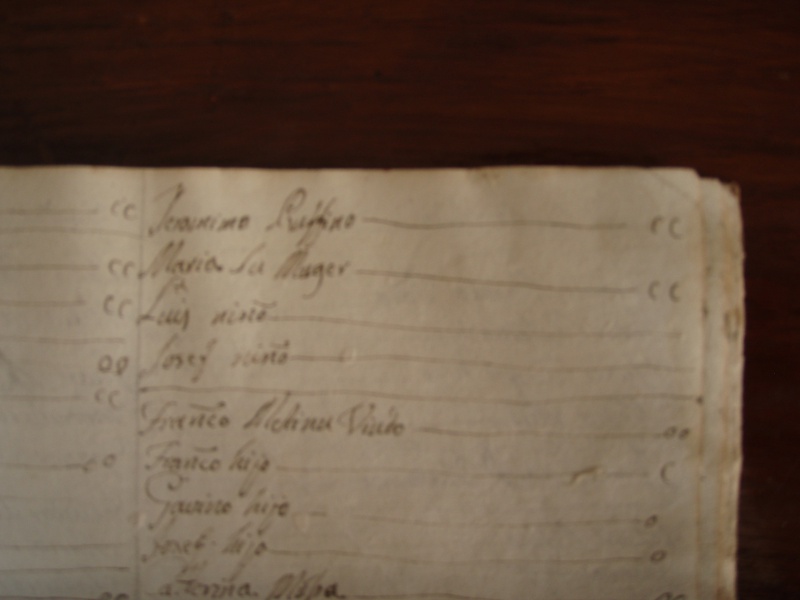 cc
cc
cc
oo
cc
o
Jeronimo Ruffino cc
Maria su Muger cc
Luis niño
Josef niño
Franco Molina Viudo oo
Franco hijo c
Gavino hijo o
Josef hijo o